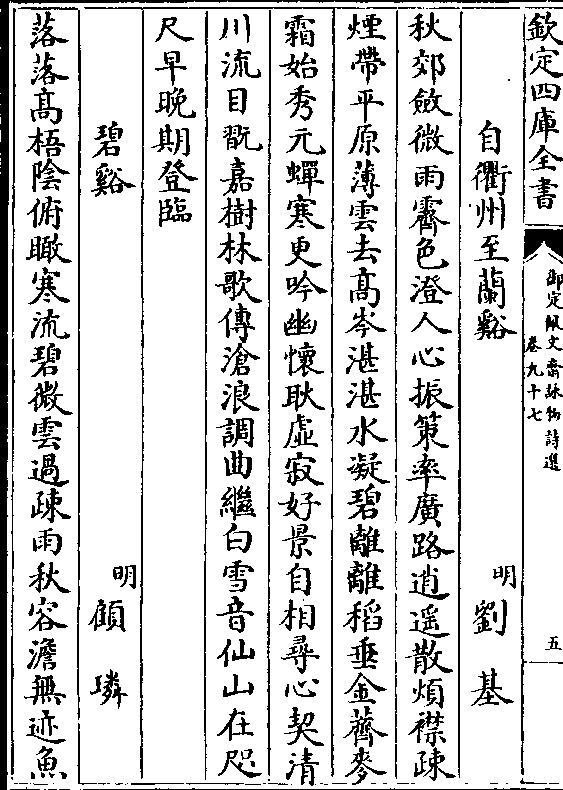 欽定四庫全書
御定佩文齋詠物詩選
卷九十七
五
自衢州至蘭谿
明劉基
秋郊斂微雨霽色澄人心振策率廣路逍遥散煩襟疎
煙帶平原薄雲去髙岑湛湛水凝碧離離稻垂金蕎麥
霜始秀元蟬寒更吟幽懷耿虚寂好景自相尋心契清
川流目翫嘉樹林歌傳滄浪調曲繼白雪音仙山在咫
尺早晚期登臨
碧谿
明顧璘
落落髙梧陰俯瞰寒流碧微雲過疎雨秋容澹無迹魚